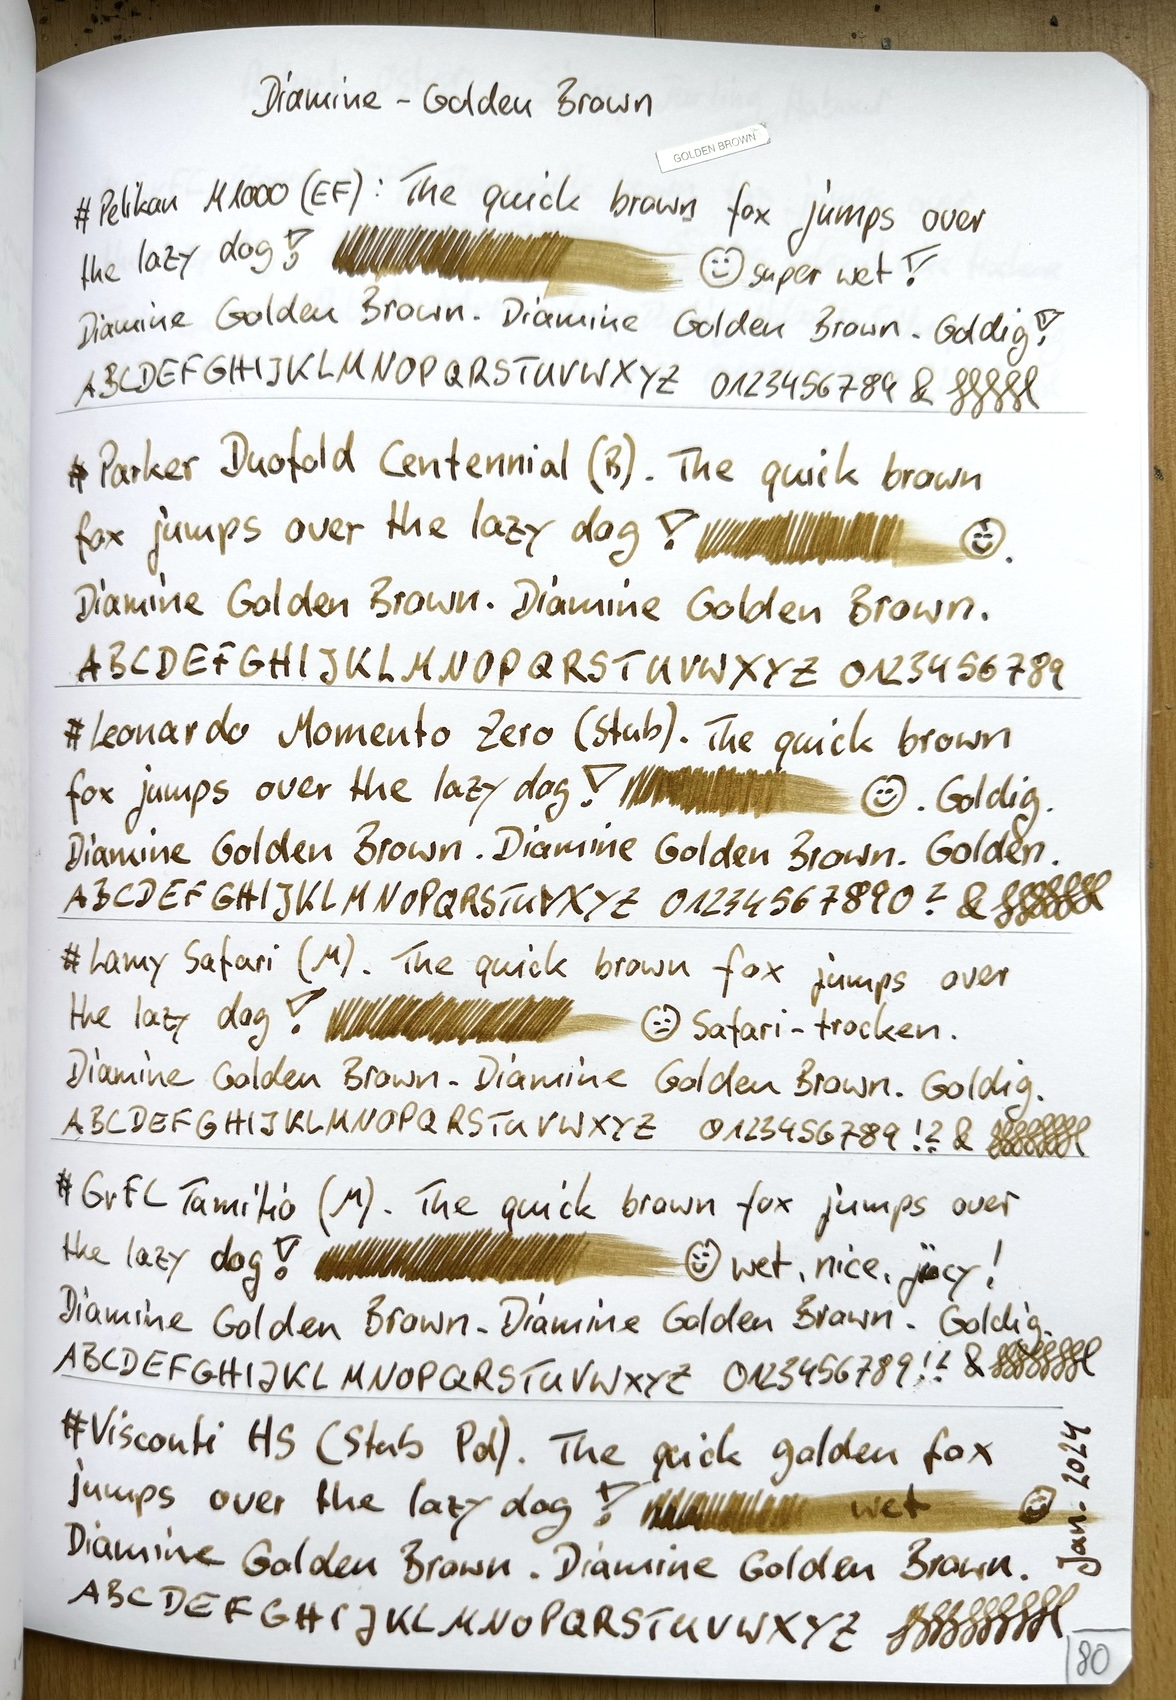 Diamine - Golden Brown
GOLDEN BROWN
# Pelikan M1000 (EF): The quick brown fox jumps over
the lazy dog! super wet!
Diamine Golden Brown. Diamine Golden Brown. Goldig!
ABCDEFGHIJKLMNOPQRSTUVWXYZ 0123456789 &
# Parker Duofold Centennial (B). The quick brown
fox jumps over the lazy dog!
Diamine Golden Brown. Diamine Golden Brown.
ABCDEFGHIJKLMNOPQRSTUVWXYZ 0123456789
# Leonardo Momento Zero (Stub). The quick brown
fox jumps over the lazy dog! . Goldig.
Diamine Golden Brown. Diamine Golden Brown. Golden.
ABCDEFGHIJKLMNOPQRSTUVXYZ 01234567890 ? &
# Lamy Safari (M). The quick brown fox jumps over
the lazy dog! Safari-trocken.
Diamine Golden Brown. Diamine Golden Brown. Goldig.
ABCDEFGHIJKLMNOPQRSTUVWXYZ 0123456789 !? &
# GvFC Tamitio (M). The quick brown fox jumps over
the lazy dog! wet, nice, juicy!
Diamine Golden Brown. Diamine Golden Brown. Goldig.
ABCDEFGHIJKLMNOPQRSTUVWXYZ 0123456789!? &
# Visconti HS (Stub Pd). The quick golden fox
jumps over the lazy dog! wet
Diamine Golden Brown. Diamine Golden Brown.
ABCDEFGHIJKLMNOPQRSTUVWXYZ
Jan. 2024
80